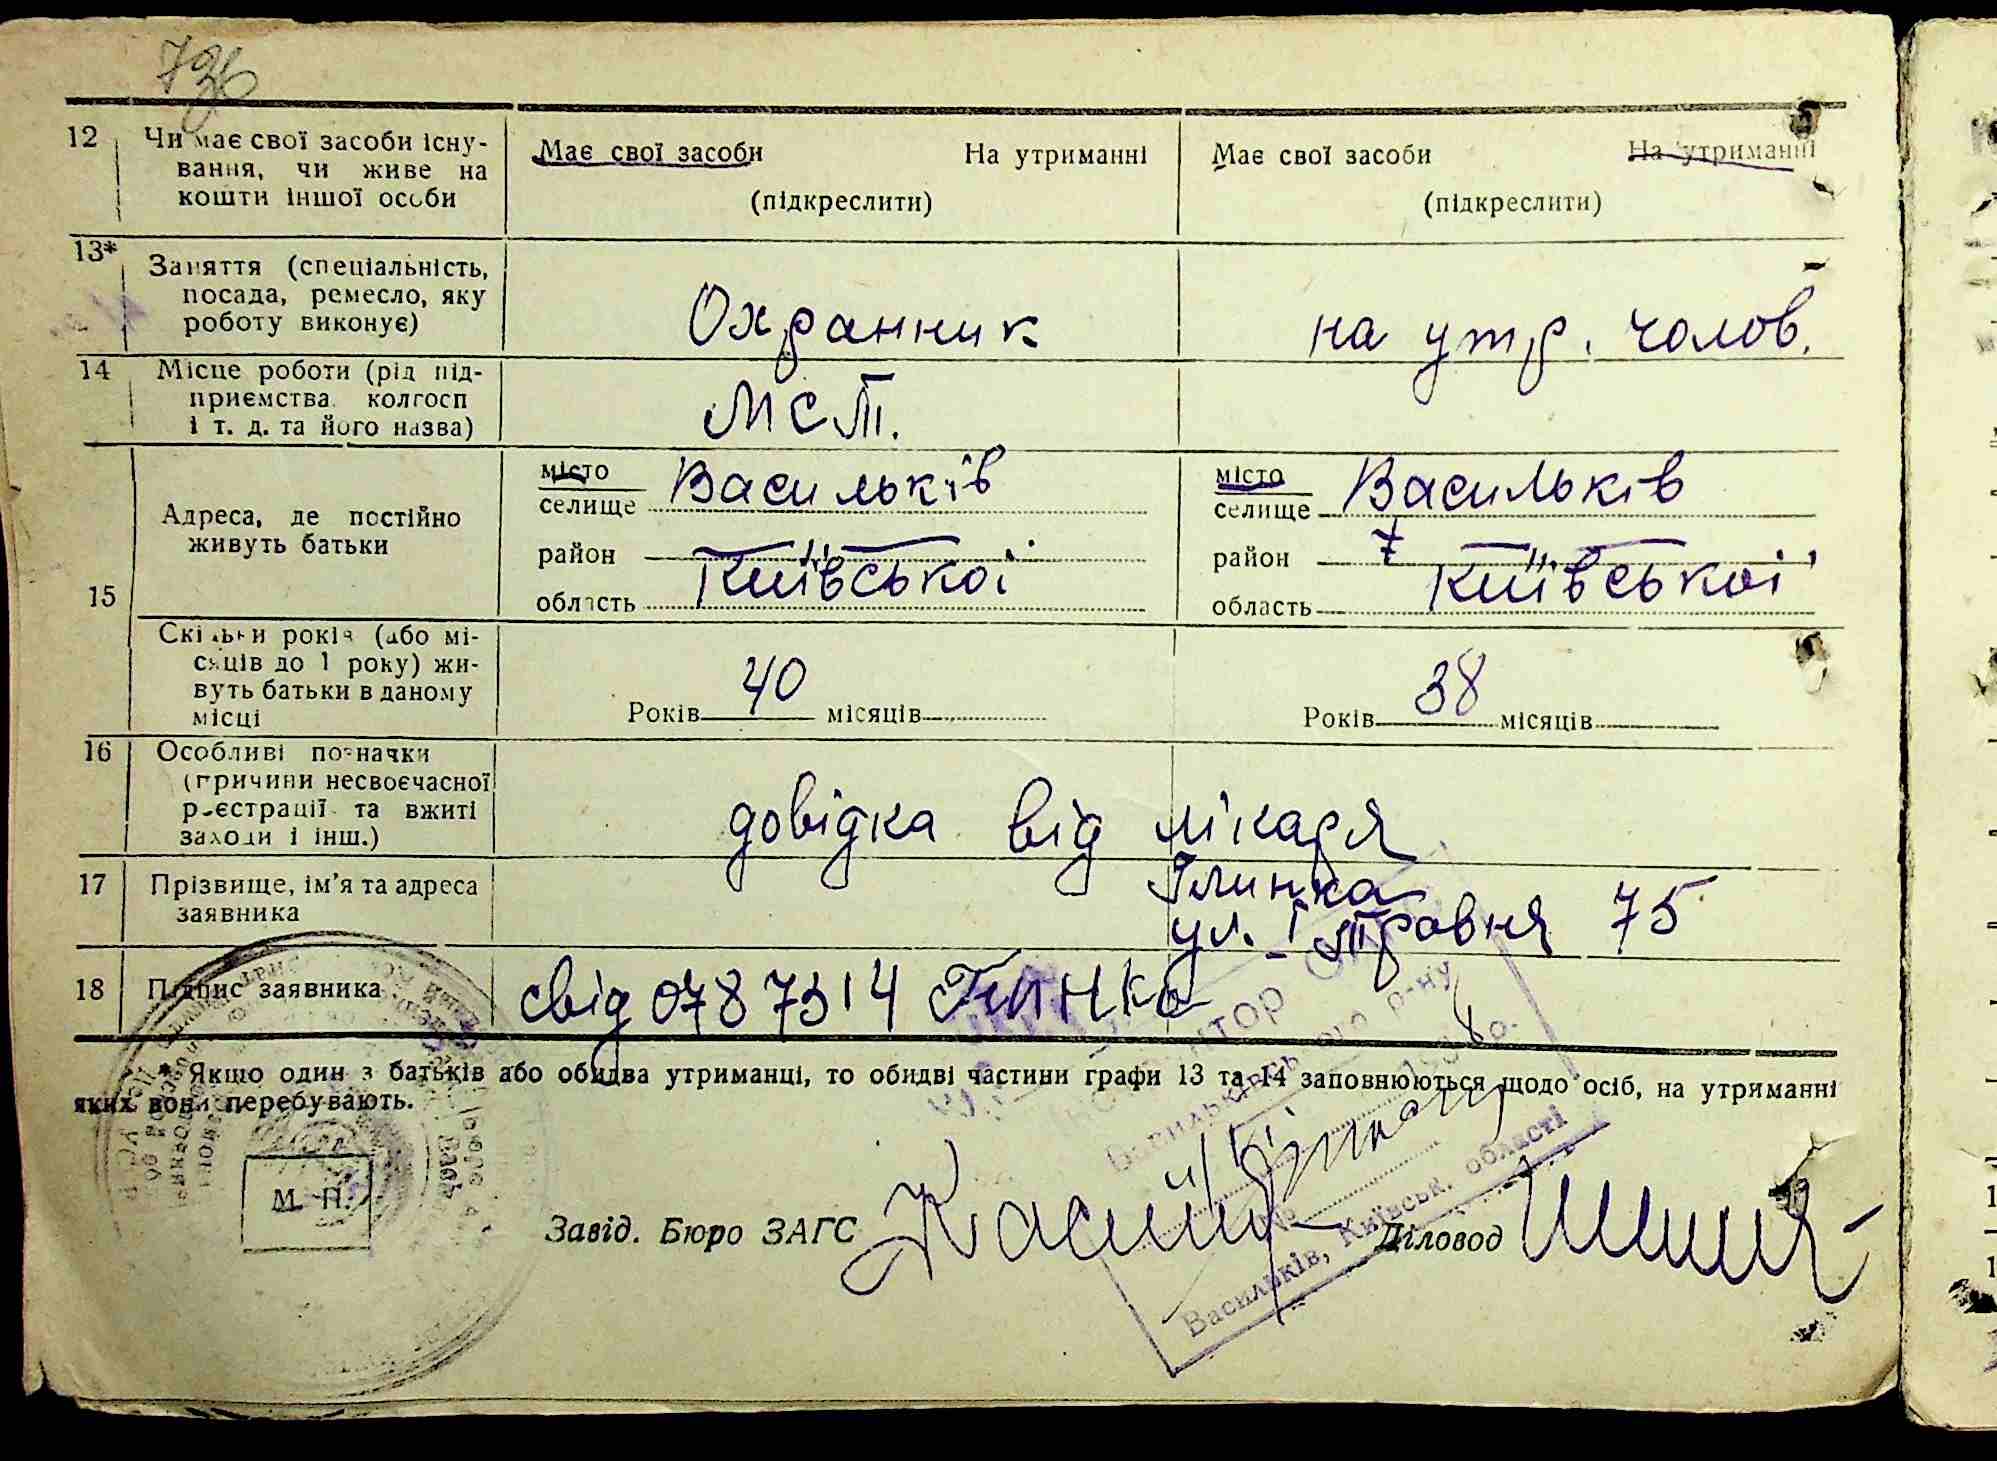 736
12 Чи має свої засоби існу-
вання, чи живе на
кошти іншої особи
Має свої засоби На утриманні
(підкреслити)
Має свої засоби На утриманні
(підкреслити)
13* Заняття (спеціальність,
посада, ремесло, яку
роботу виконує)
Охранник
на утр. чолов.
14 Місце роботи (рід під-
приємства, колгосп
і т. д. та його назва)
МСП.
15 Адреса, де постійно
живуть батьки
місто
селище Васильків
район
область Київської
місто
селище Васильків
район
область Київської
Скільки років (або мі-
сяців до 1 року) жи-
вуть батьки в даному
місці
Років 40 місяців
Років 38 місяців
16 Особливі позначки
(причини несвоєчасної
реєстрації та вжиті
заходи і інш.)
довідка від лікаря
17 Прізвище, ім'я та адреса
заявника
Глинка
ул. 1 Травня 75
18 Підпис заявника
свід 0787314 Глинка
* Якщо один з батьків або обидва утриманці, то обидві частини графи 13 та 14 заповнюються щодо осіб, на утриманні
яких вони перебувають.
М. П.
Завід. Бюро ЗАГС
Діловод
Васильків, Київськ. області